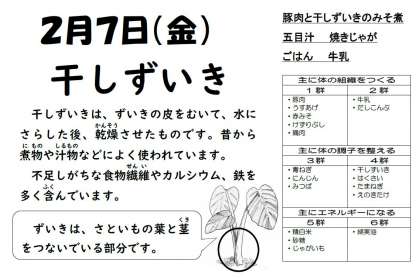 2月7日(金)
干しずいき
干しずいきは、ずいきの皮をむいて、水に
さらした後、乾燥させたものです。昔から
煮物や汁物などによく使われています。
不足しがちな食物繊維やカルシウム、鉄を
多く含んでいます。
ずいきは、さといもの葉と茎
をつないでいる部分です。
豚肉と干しずいきのみそ煮
五目汁 焼きじゃが
ごはん 牛乳
主に体の組織をつくる
1群 2群
・豚肉 ・牛乳
・うすあげ ・だしこんぶ
・赤みそ
・けずりぶし
・鶏肉
主に体の調子を整える
3群 4群
・青ねぎ ・干しずいき
・にんじん ・はくさい
・みつば ・たまねぎ
・えのきたけ
主にエネルギーになる
5群 6群
・精白米 ・綿実油
・砂糖
・じゃがいも